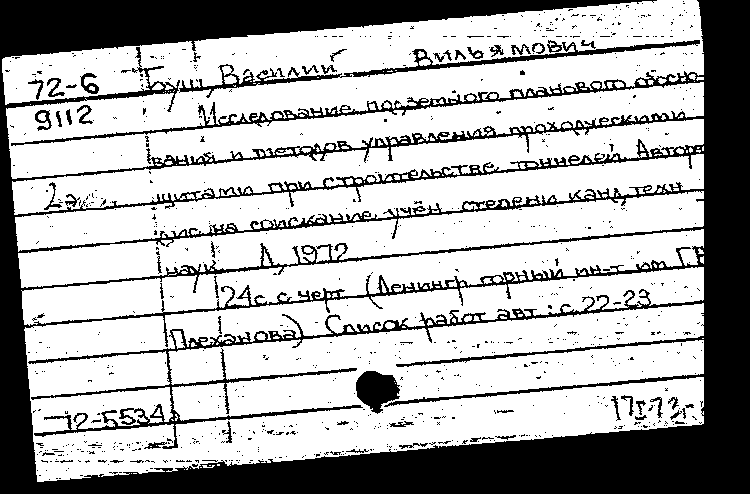 72-6 Буш, Василий Вильямович
9112 Исследование подземного планового обосно-
вания и методов управления проходческими
2 экз. щитами при строительстве тоннелей. Автореф
дис. на соискание учён. степени канд. техн.
наук. Л, 1972
24с. с черт. (Ленингр горный ин-т им Г.В
Плеханова) Список работ авт: с. 22-23
72-5534а
17I 73г.